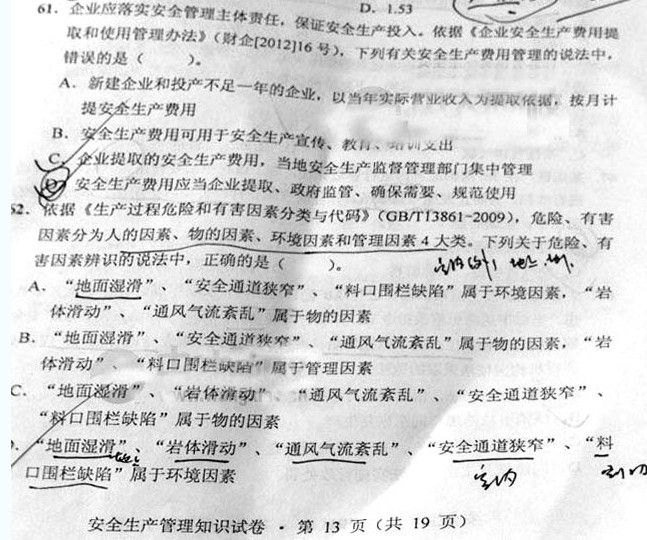 D. 1.53
61. 企业应落实安全管理主体责任，保证安全生产投入。依据《企业安全生产费用提
取和使用管理办法》（财企[2012]16 号），下列有关安全生产费用管理的说法中，
错误的是（　　）。
A．新建企业和投产不足一年的企业，以当年实际营业收入为提取依据，按月计
提安全生产费用
B．安全生产费用可用于安全生产宣传、教育、培训支出
C．企业提取的安全生产费用，当地安全生产监督管理部门集中管理
D．安全生产费用应当企业提取、政府监管、确保需要、规范使用
62. 依据《生产过程危险和有害因素分类与代码》（GB/T13861-2009），危险、有害
因素分为人的因素、物的因素、环境因素和管理因素 4 大类。下列关于危险、有
害因素辨识的说法中，正确的是（　　）。
A．“地面湿滑”、“安全通道狭窄”、“料口围栏缺陷”属于环境因素，“岩
体滑动”、“通风气流紊乱”属于物的因素
B．“地面湿滑”、“安全通道狭窄”、“通风气流紊乱”属于物的因素，“岩
体滑动”、“料口围栏缺陷”属于管理因素
C．“地面湿滑”、“岩体滑动”、“通风气流紊乱”、“安全通道狭窄”、
“料口围栏缺陷”属于物的因素
“地面湿滑”、“岩体滑动”、“通风气流紊乱”、“安全通道狭窄”、“料
口围栏缺陷”属于环境因素
室内
安全生产管理知识试卷 · 第 13 页（共 19 页）